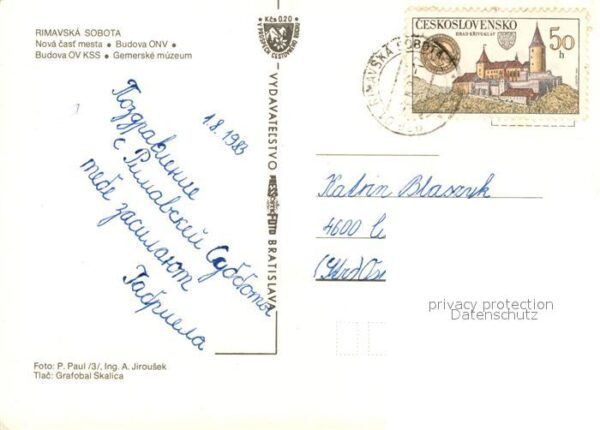 RIMAVSKÁ SOBOTA
Nová časť mesta • Budova ONV •
Budova OV KSS • Gemerské múzeum
Kčs 0,20
ČESKOSLOVENSKO
HRAD KŘIVOKLÁT
50 h
RIMAVSKÁ SOBOTA
1.8.1983
Поздравление
с Римавской Субботы
тебе засилают
Габриела
VYDAVATEĽSTVO
BRATISLAVA
Katrin Blaszyk
4600
privacy protection
Datenschutz
Foto: P. Paul /3/, Ing. A. Jiroušek
Tlač: Grafobal Skalica